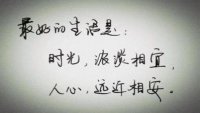 最好的生活是:
时光，浓淡相宜，
人心，远近相安。